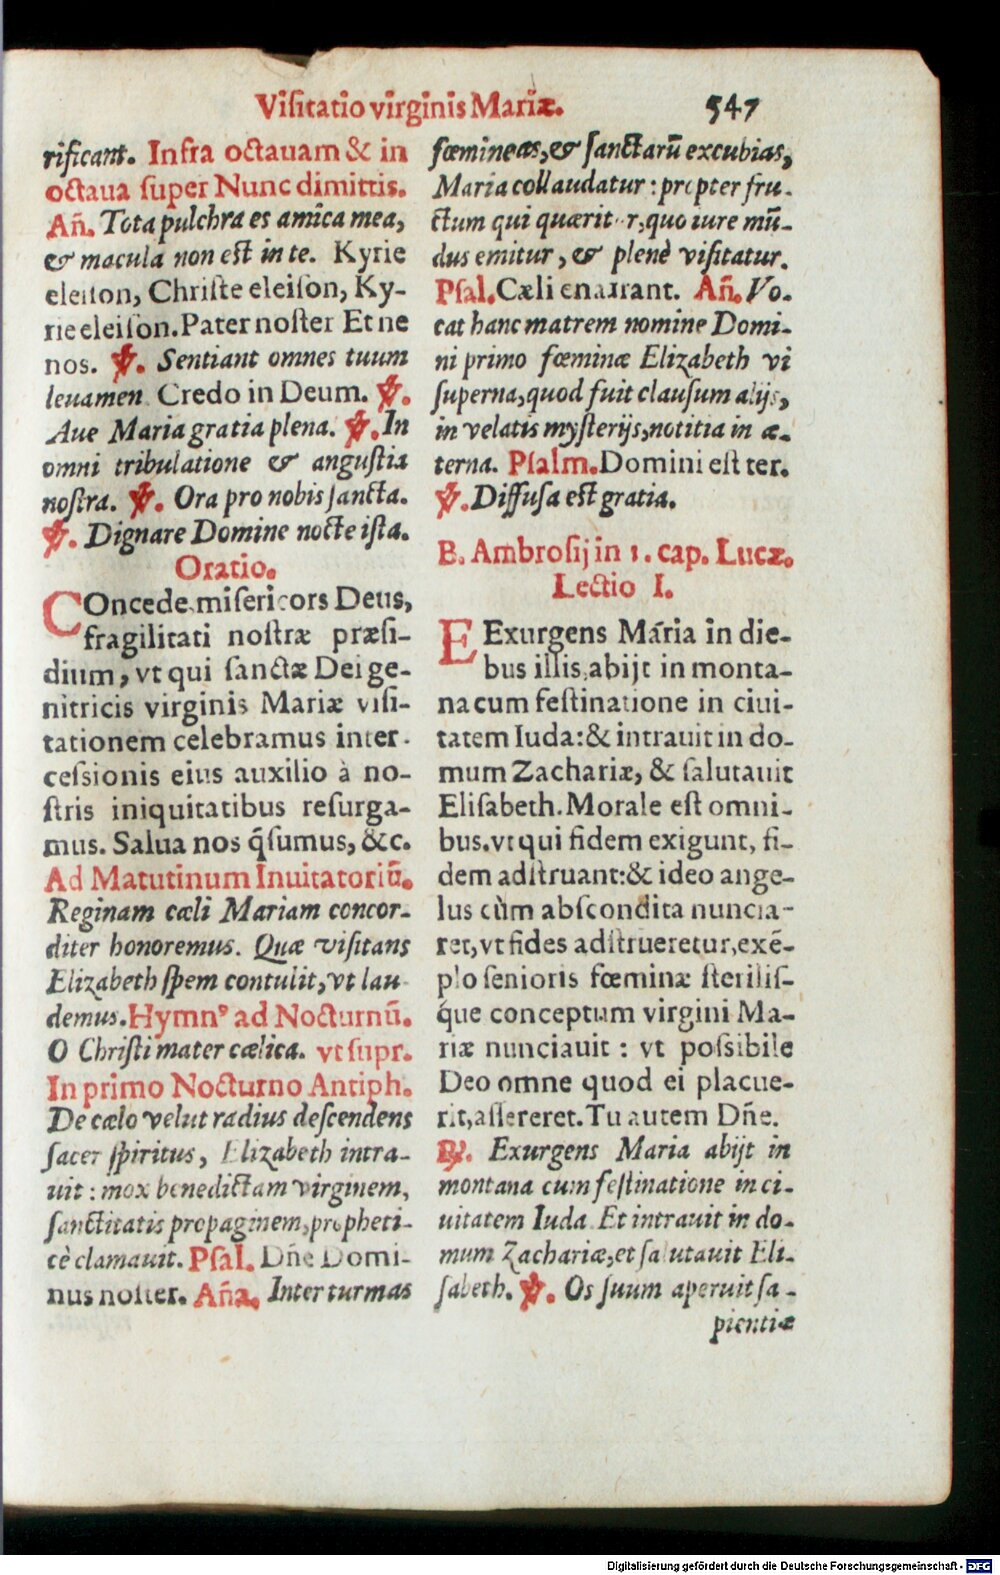 Visitatio virginis Mariæ. 547
rificant. Infra octauam & in
octaua super Nunc dimittis.
Añ. Tota pulchra es amica mea,
& macula non est in te. Kyrie
eleison, Christe eleison, Ky-
rie eleison. Pater noster Et ne
nos. ℣. Sentiant omnes tuum
leuamen Credo in Deum. ℣.
Aue Maria gratia plena. ℣. In
omni tribulatione & angustia
nostra. ℣. Ora pro nobis sancta.
℣. Dignare Domine nocte ista.
Oratio.
COncede misericors Deus,
fragilitati nostræ præsi-
dium, vt qui sanctæ Dei ge-
nitricis virginis Mariæ visi-
tationem celebramus inter-
cessionis eius auxilio à no-
stris iniquitatibus resurga-
mus. Salua nos q̃sumus, &c.
Ad Matutinum Inuitatoriũ.
Reginam cæli Mariam concor-
diter honoremus. Quæ visitans
Elizabeth spem contulit, vt lau
demus. Hymn⁹ ad Nocturnũ.
O Christi mater cælica. vt supr.
In primo Nocturno Antiph.
De cælo velut radius descendens
sacer spiritus, Elizabeth intra-
uit : mox benedictam virginem,
sanctitatis propaginem, propheti-
cè clamauit. Psal. Dñe Domi-
nus noster. Aña. Inter turmas
fœmineas, & sanctarũ excubias,
Maria collaudatur : propter fru-
ctum qui quærit r, quo iure mũ-
dus emitur, & plenè visitatur.
Psal. Cæli enarrant. Añ. Vo-
cat hanc matrem nomine Domi-
ni primo fœminæ Elizabeth vi
superna, quod fuit clausum alijs,
in velatis mysterijs, notitia in æ-
terna. Psalm. Domini est ter.
℣. Diffusa est gratia.
B. Ambrosij in 1. cap. Lucæ.
Lectio I.
E Exurgens Maria in die-
bus illis abijt in monta-
na cum festinatione in ciui-
tatem Iuda: & intrauit in do-
mum Zachariæ, & salutauit
Elisabeth. Morale est omni-
bus. vt qui fidem exigunt, fi-
dem adstruant: & ideo ange-
lus cùm abscondita nuncia-
ret, vt fides adstrueretur, exẽ-
plo senioris fœminæ sterilis-
que conceptum virgini Ma-
riæ nunciauit : vt possibile
Deo omne quod ei placue-
rit, assereret. Tu autem Dñe.
℟. Exurgens Maria abijt in
montana cum festinatione in ci-
uitatem Iuda Et intrauit in do-
mum Zachariæ, et salutauit Eli-
sabeth. ℣. Os suum aperuit sa-
pientiæ
Digitalisierung gefördert durch die Deutsche Forschungsgemeinschaft - DFG